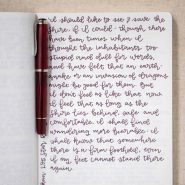 I should like to save the
shire, if I could - though there
have been times when I
thought the inhabitants too
stupid and dull for words,
and have felt that an earth-
quake or an invasion of dragons
might be good for them. But
I don't feel like that now. I
feel that as long as the
shire lies behind, safe and
comfortable, I shall find
wandering more bearable: I
shall know that somewhere
there is a firm foothold, even
if my feet cannot stand there
again.